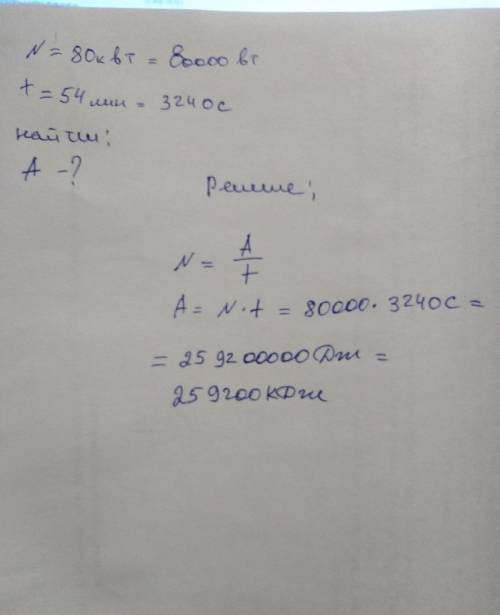 N = 80квт = 80000 вт
t = 54 мин = 3240с
найти:
A -?
Решние;
N = A
t
A = N·t = 80000·3240с =
= 259200000 Дж =
259200кДж